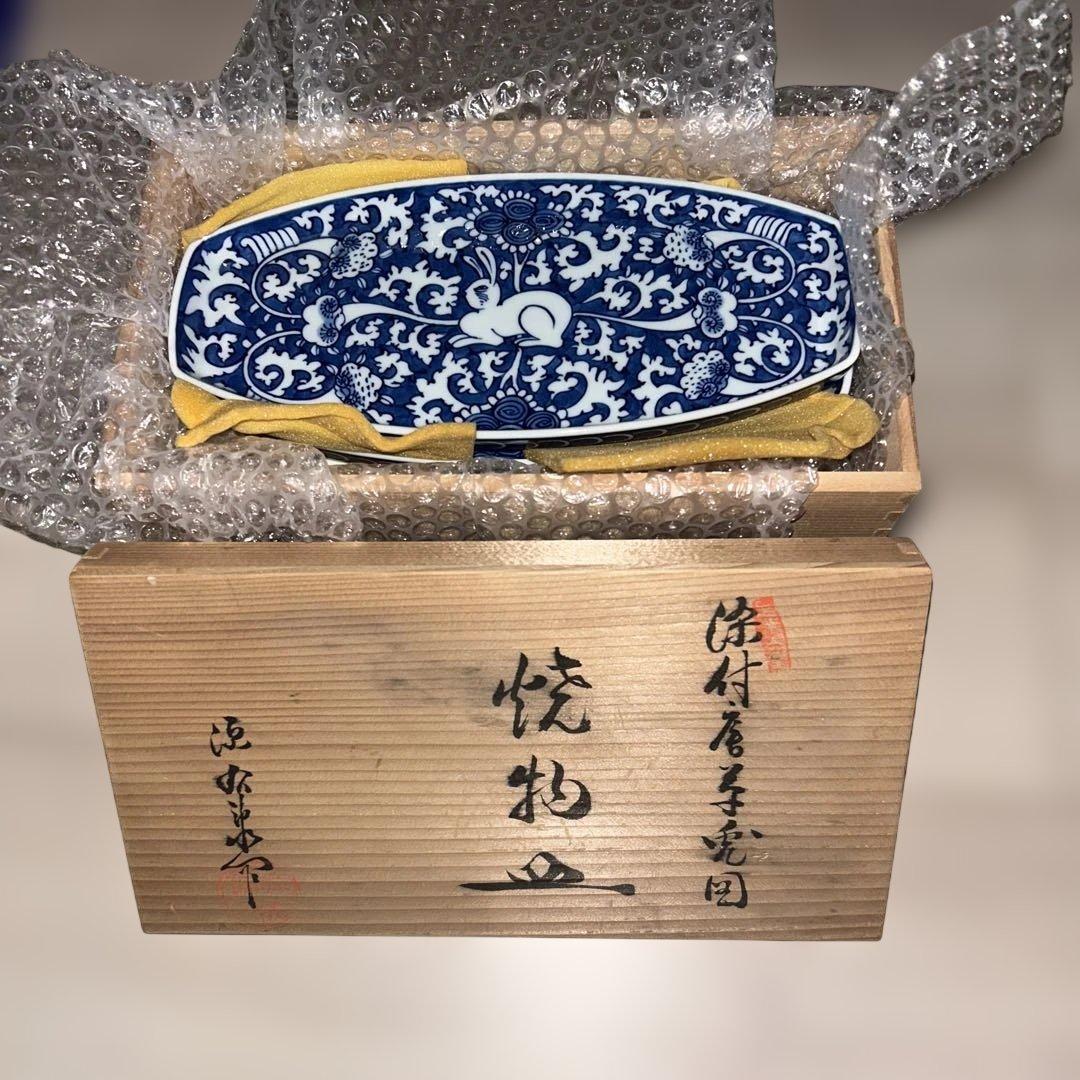 染付唐草兎図
焼物皿
源右泉作